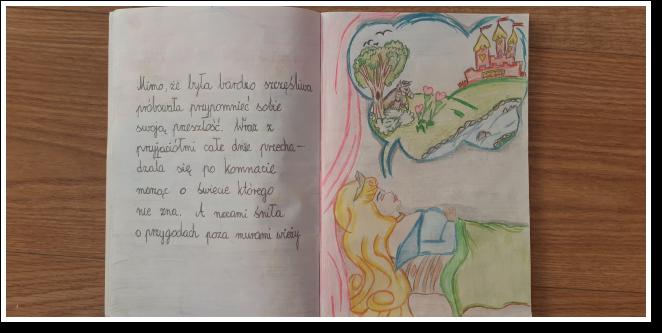 Mimo, że była bardzo szczęśliwa
próbowała przypomnieć sobie
swoją przeszłość. Wraz z
przyjaciółmi całe dnie przecha-
dzała się po komnacie
marząc o świecie którego
nie zna. A nocami śniła
o przygodach poza murami wieży